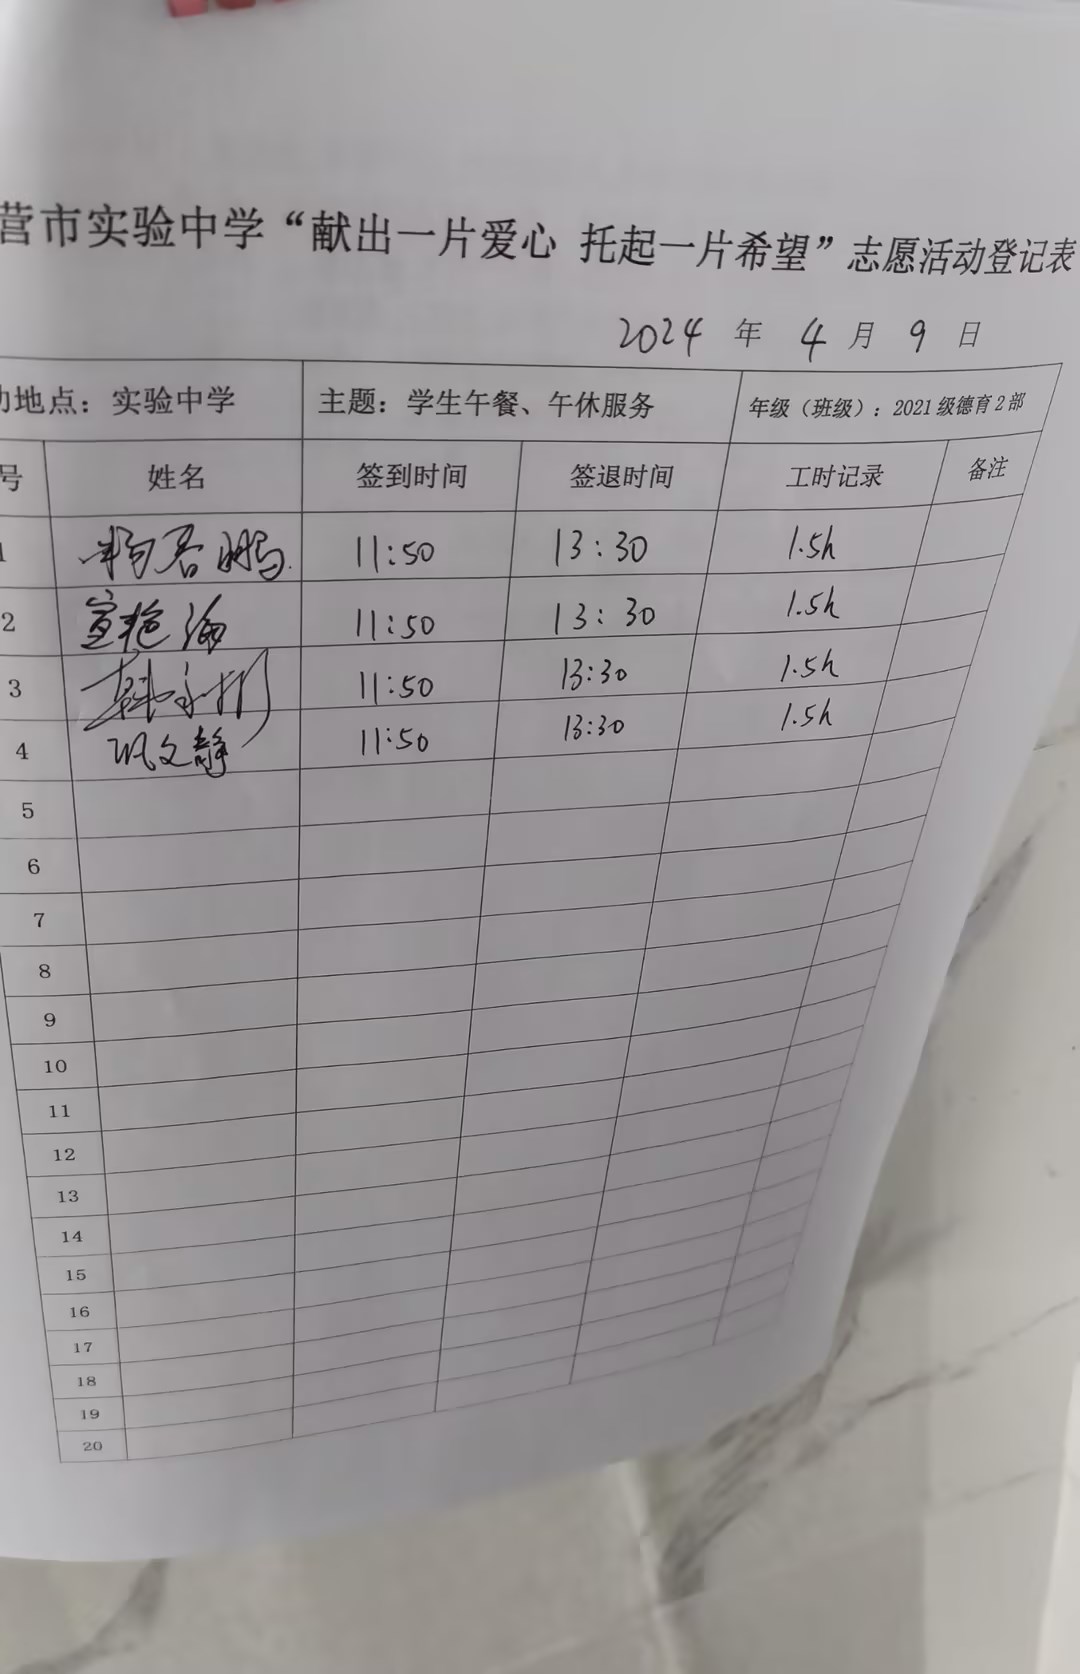 营市实验中学“献出一片爱心 托起一片希望”志愿活动登记表
2024 年 4 月 9 日
动地点：实验中学 主题：学生午餐、午休服务 年级（班级）：2021级德育2部
号 姓名 签到时间 签退时间 工时记录 备注
1 11:50 13:30 1.5h
2 宣艳海 11:50 13:30 1.5h
3 韩 11:50 13:30 1.5h
4 巩文静 11:50 13:30 1.5h
5
6
7
8
9
10
11
12
13
14
15
16
17
18
19
20